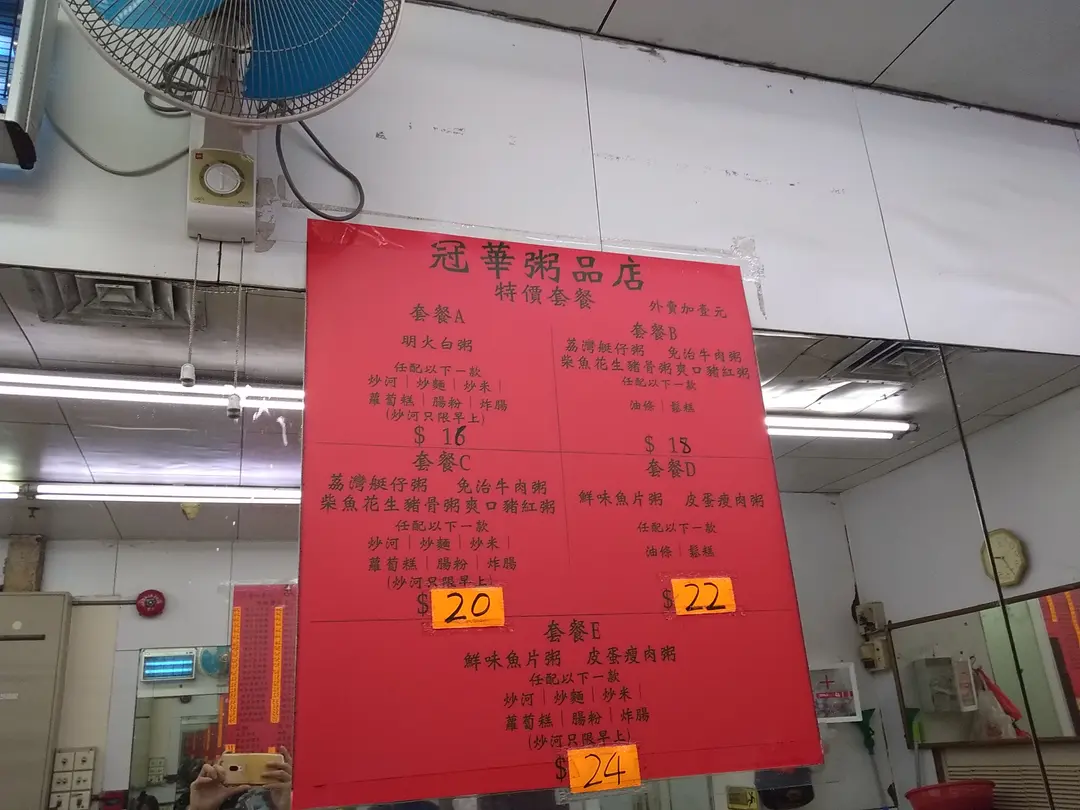 冠華粥品店
特價套餐
外賣加壹元
套餐A
明火白粥
任配以下一款
炒河｜炒麵｜炒米｜
蘿蔔糕｜腸粉｜炸腸
(炒河只限早上)
$ 16
套餐B
荔灣艇仔粥 免治牛肉粥
柴魚花生豬骨粥爽口豬紅粥
任配以下一款
油條｜鬆糕
$ 18
套餐C
荔灣艇仔粥 免治牛肉粥
柴魚花生豬骨粥爽口豬紅粥
任配以下一款
炒河｜炒麵｜炒米｜
蘿蔔糕｜腸粉｜炸腸
(炒河只限早上)
$20
套餐D
鮮味魚片粥 皮蛋瘦肉粥
任配以下一款
油條｜鬆糕
$22
套餐E
鮮味魚片粥 皮蛋瘦肉粥
任配以下一款
炒河｜炒麵｜炒米｜
蘿蔔糕｜腸粉｜炸腸
(炒河只限早上)
$24